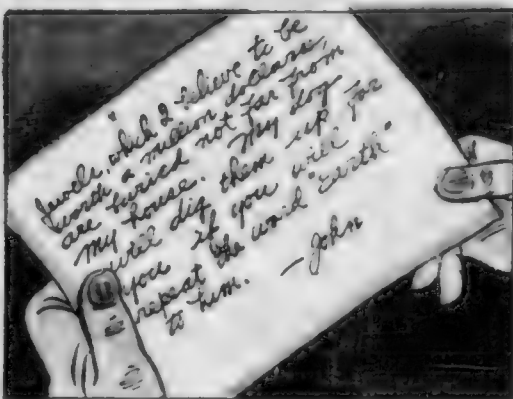 "
Jewels, which I believe to be
worth a million dollars,
are buried not far from
my house. My dog
will dig them up for
you if you will
repeat the word "Earth"
to him.
—John